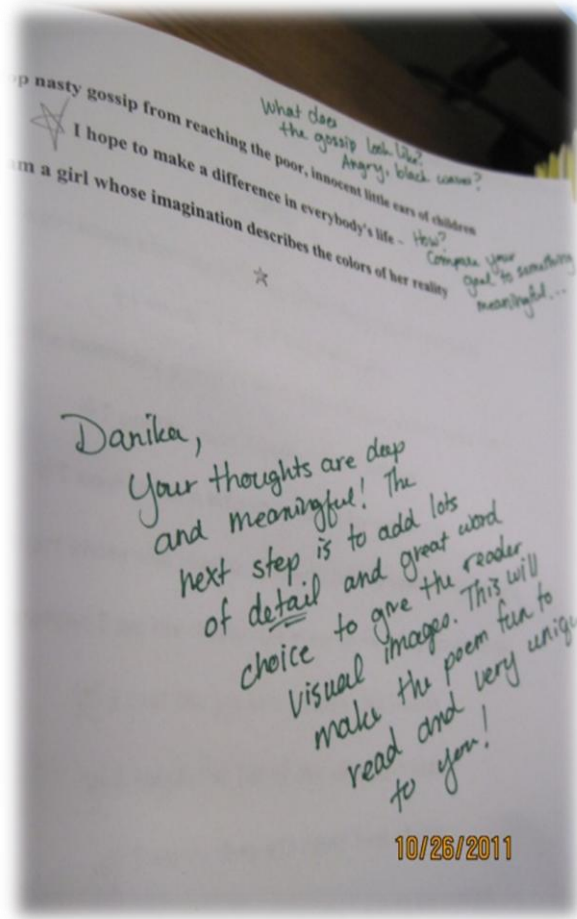 op nasty gossip from reaching the poor, innocent little ears of children
What does
the gossip look like?
Angry, black
I hope to make a difference in everybody's life - How?
Compare your
goal to something
meaningful...
am a girl whose imagination describes the colors of her reality
Danika,
Your thoughts are deep
and meaningful! The
next step is to add lots
of detail and great word
choice to give the reader
visual images. This will
make the poem fun to
read and very uniqu
to you!
10/26/2011